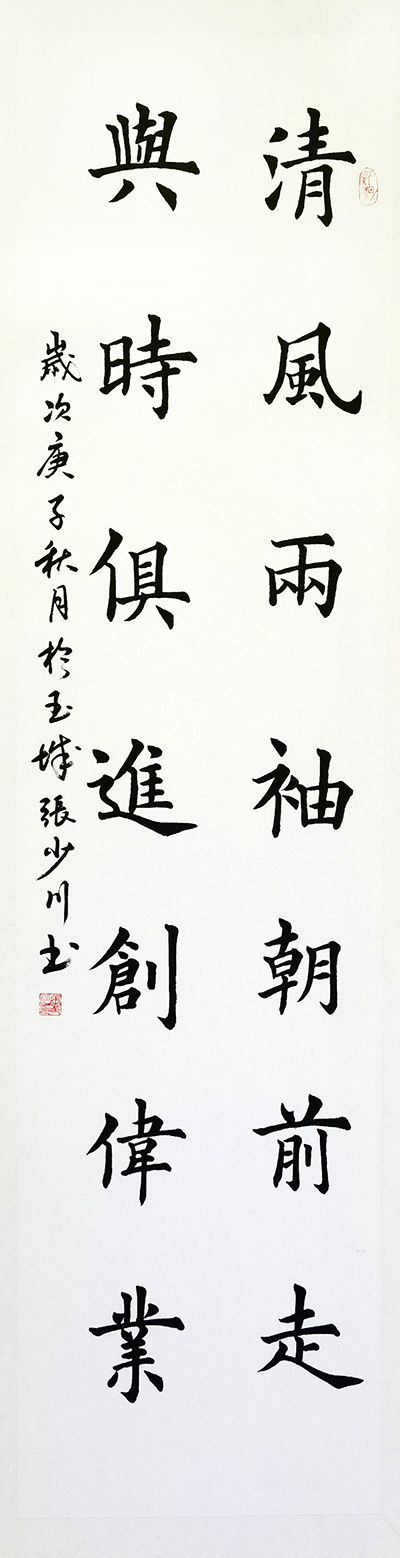 清風兩袖朝前走
與時俱進創偉業
歲次庚子秋月於玉城張少川书